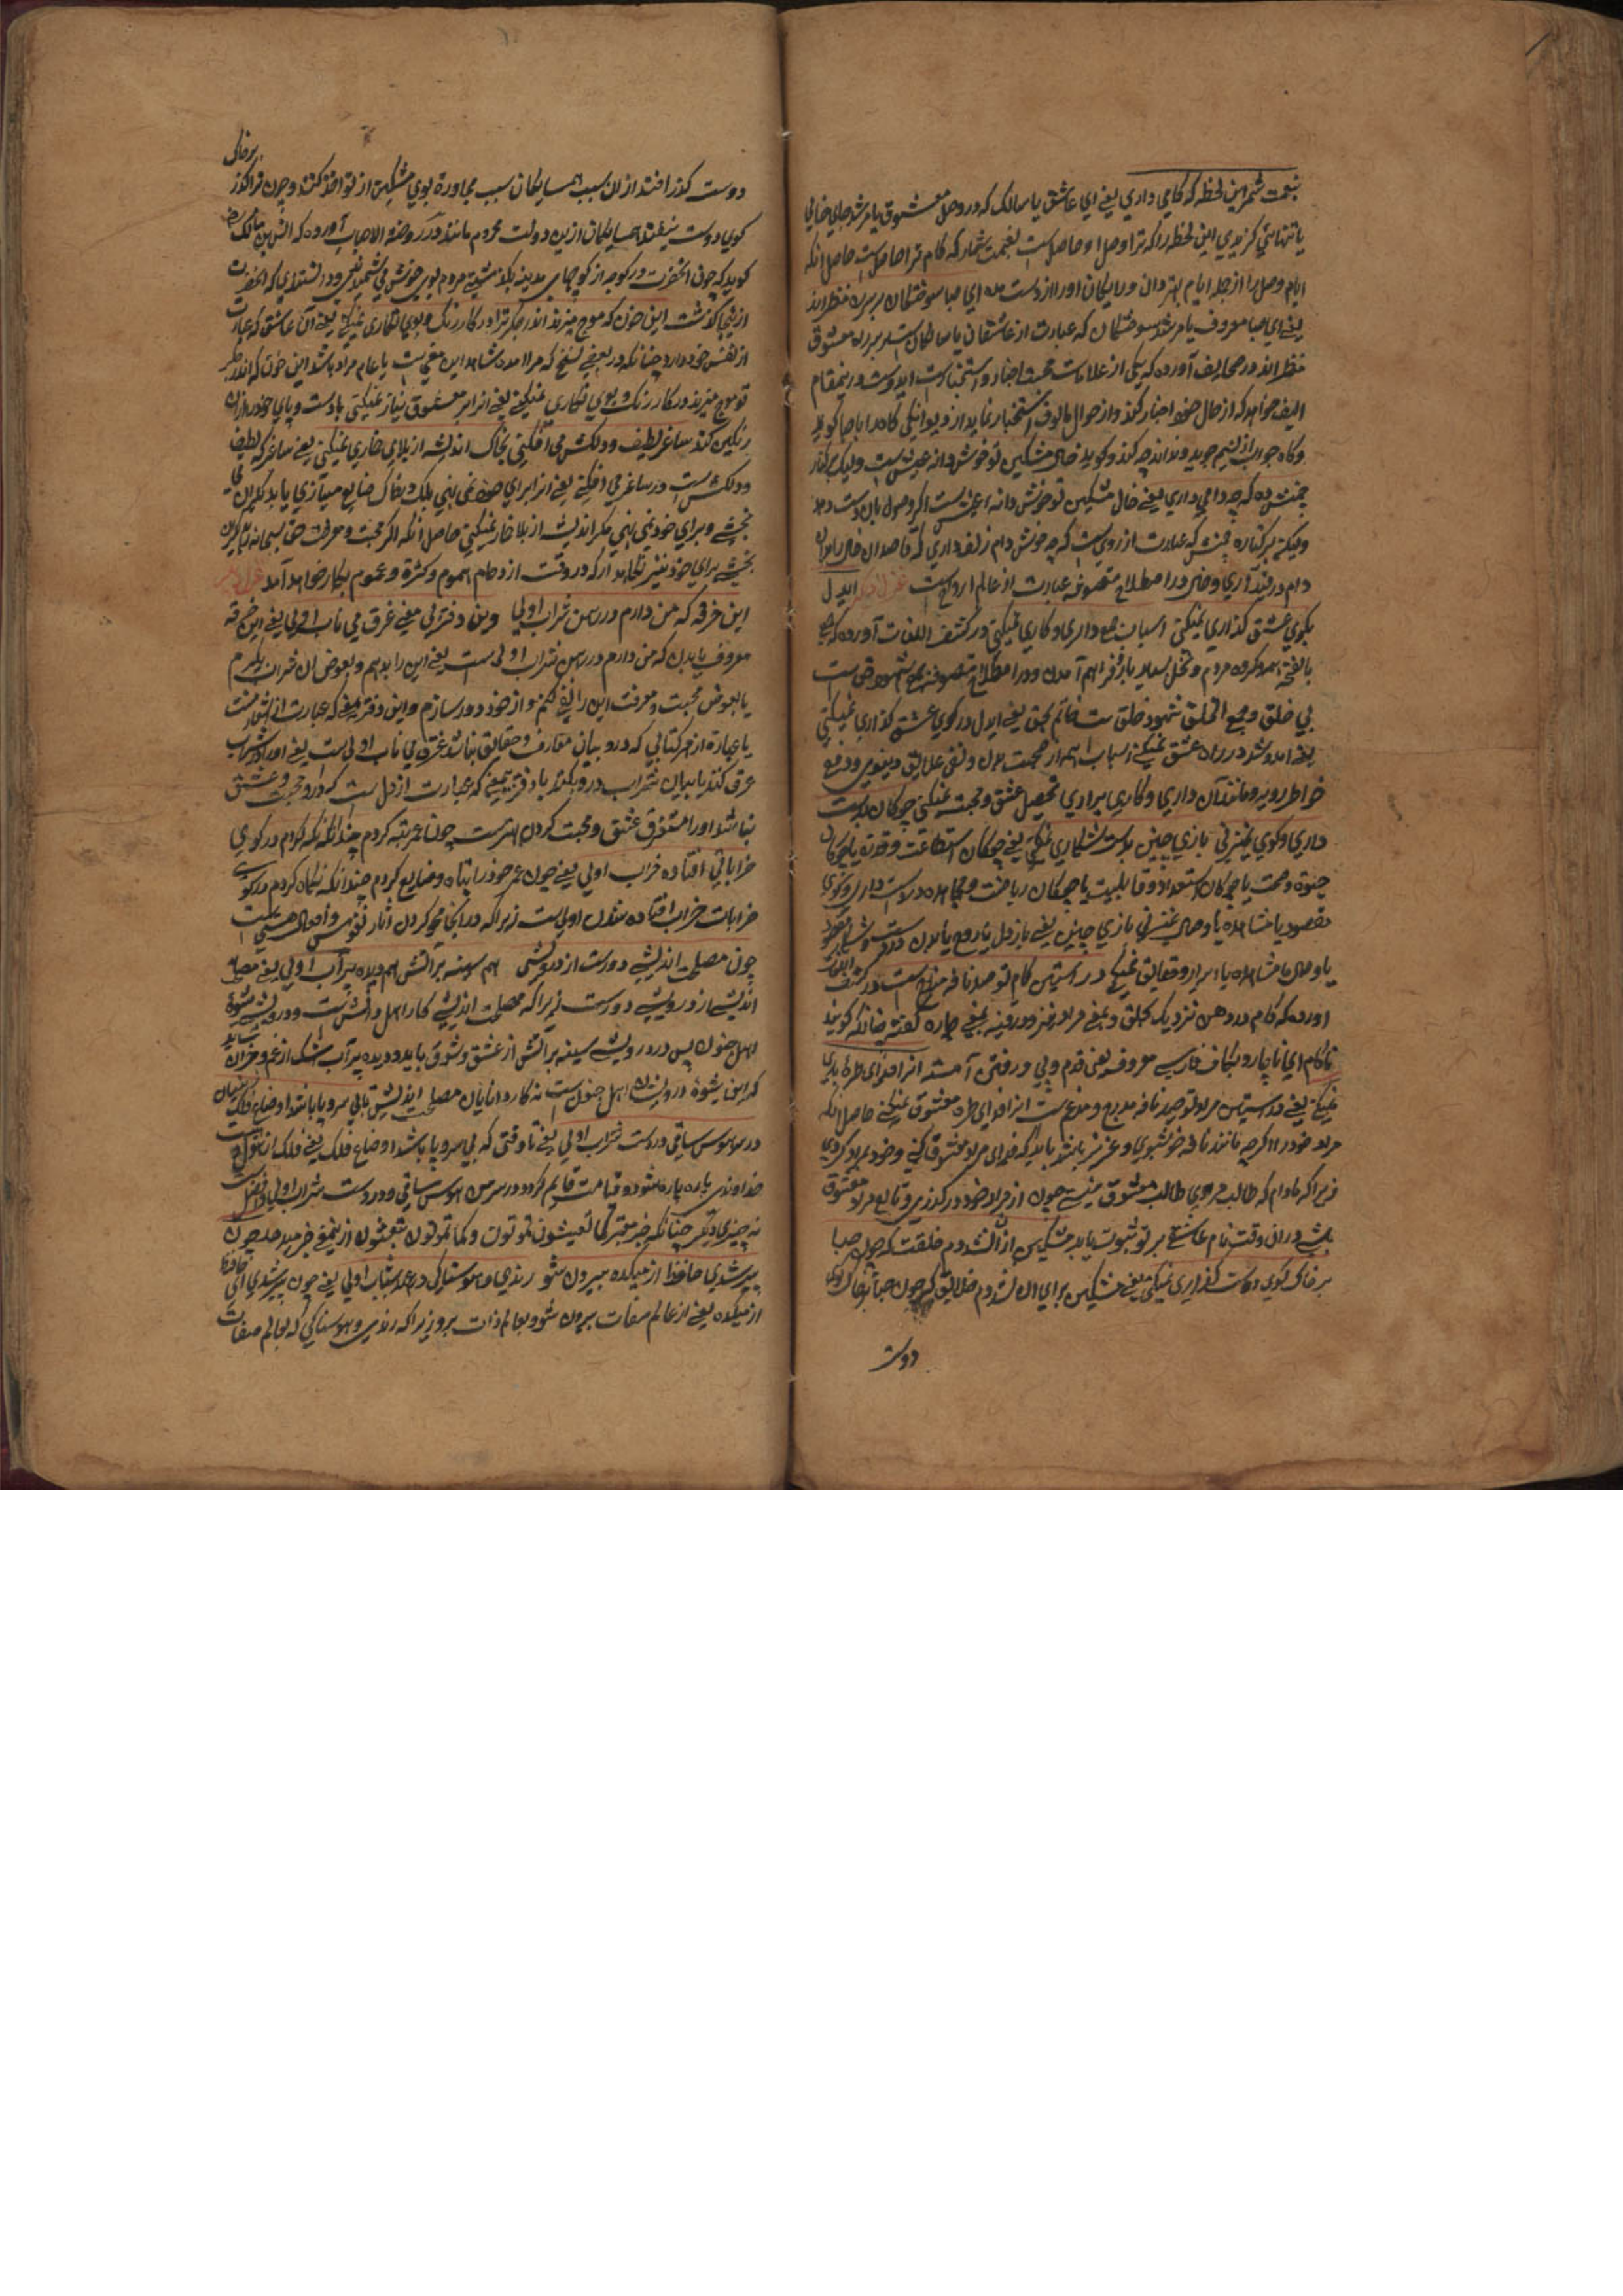 غنیمت شمر این لحظه که کامی داری یعنی ای عاشق یا سالک که در وصل معشوق یا مرشد جای خالی
یا تنهائی گزیدی این لحظه را که ترا وصل او حاصل است غنیمت شمار که کام ترا حاصل است حاصل آنکه
ایام وصل را از جمله ایام بهتر دان و رایکان او را از دست مده ای صبا سوختکان بر سر ره منتظرند
یعنی ای صبا معروف یا مرشد سوختکان که عبارت از عاشقان یا طالبان است بر سر ره معشوق
منتظراند در صحایف آورده که یکی از علامات محبت اخبار و استخبار است ای دوست درینمقام
الیف خواهد که از حال خود اخبار کند و از حوال مالوف استخبار نماید از دیوانکی گاه با صبا گوید
و گاه جواب از نسیم جوید و نداند چه کند و گوید خال مشکین تو خوش دانه عیشیست ولیک بر کنار
چمنش وه که چه دامی داری یعنی خال مشکین تو خوش دانه عیش است اگر وصول بآن دست دهد
ولیکن بر کناره چمنش که عبارت از روی است که چه خوش دام زلف داری که قاصدان خال را بدان
دام در قید آری و خال در اصطلاح متصوفه عبارت از عالم ارواح است غزل دیگر ایدل
بکوی عشق گذاری نمیکنی اسباب جمع داری و کاری نمیکنی در کشف اللغات آورده که جمع
بالفتح همه گروه مردم و نخل بسیار بار و فراهم آمدن و در اصطلاح متصوفه جمع شهود حق است
بی خلق و جمع الجمع شهود خلق است قائم بحق یعنی ایدل در کوی عشق گذاری نمیکنی
یعنی آمد و شد در راه عشق نمیکنی اسباب همه از صحت بدن و نفی علایق دنیوی و دفع
خواطر رویه و مانند آن داری و کاری برای تحصیل عشق و محبت نمیکنی چوکان بدست
داری و گوی نمیزنی بازی چنین بدست و شکاری نمیکنی یعنی چوکان استطاعت و قدرت یا چوکان
حیوة و صحت یا چوکان استعداد و قابلیت یا چوکان ریاضت و مجاهده در دست داری و گوی
مقصود یا مشاهده یا وصال نمیزنی بازی چنین یعنی باز دل یا روح یا بدن در دست و شکار مقصود
یا وصال یا مشاهده یا اسرار و حقایق نمیکنی در آستین کام تو صد نافه مدرج است در کشف اللغات
آورده که کام در دهن نزدیک بحلق و بمعنی مراد نیز و درینه بمعنی چاره گفته چنانکه گویند
ناکام ای ناچار و بکاف فارسی معروف یعنی قدم و پی و رفتن آهسته انرا فدای طره یاری
نمیکنی یعنی در آستین مراد تو صد نافه مدرج و مدغم است انرا فدای طره معشوق نمیکنی حاصل آنکه
مراد خود را اگرچه مانند نافه خوشبوی و عزیز باشد باید که فدای مراد معشوق کنی و خود بمراد گردی
زیرا که مادام که طالب مراد خودی طالب معشوق نیستی چون از مراد خود در گذری و تابع مراد معشوق
باشی در ان وقت نام عاشقی بر تو ثبوت یابد مشکین از ان نشد دم خلقت که چون صبا
بر خاک کوی دوست گذاری نمیکنی یعنی مشکین برای آن نشد دم خلایق که چون صبا بر خاک کوی
دوست
بر خاک
دوست گذر افتد از ان سبب همسایکان سبب مجاورة بوی مشکین از تو اخذ کنند و چون ترا گذر
کوی دوست نیفتد همسایکان ازین دولت محروم مانند در روضة الاحباب آورده که انس بن مالک رض
گوید که چون انحضرت در کوچه از کوچهای مدینه بگذشتی مردم بوی خوش می شمیدندی و دانستندی که آنحضرت
ازینجا گذشت این خون که موج میزند اندر جگر ترا در کار رنک و بوی نگاری نمیکنی یعنی ان عاشق که عبارت
از نفس خود دارد چنانکه در بعضی نسخ که مرا آمده شاهد این معنیست یا عام مراد باشد این خون که اندر جگر
تو موج میزند در کار رنک و بوی نگاری نمیکنی یعنی انرا بر معشوق نیاز نمیکنی یا دست و پای خود را ازان
رنکین کند ساغر لطیف و دلکش و می افکنی بخاک اندیشه از بلای خماری نمیکنی یعنی ساغر که لطیف
و دلکش است در ساغر می افکنی یعنی انرا برای خود نمی نهی بلکه بخاک ضایع میسازی یا بدیکران می
بخشی و برای خود نمی نهی مکر اندیشه از بلا خمار نمیکنی حاصل آنکه اگر محبت و معرفت حق سبحانه تعالی بدیگران
بخشی برای خود نیز نگاهدار که در وقت ازدحام هموم و کثرة و غموم بکار خواهد آمد غزل دیگر
این خرقه که من دارم در رهن شراب اولی وین دفتر بی معنی غرق می ناب اولی یعنی این خرقه
معروف یا بدن که من دارم در رهن شراب اولی ست یعنی این را بدهم و بعوض ان شراب بگیرم
یا بعوض محبت و معرفت این را نفی کنم و از خود دور سازم و این دفتر بیمعنی که عبارت از
یا عبارة از هر کتابی که در و بیان معارف و حقایق نباشد غرق می ناب اولی ست یعنی او را در شراب
غرق کنند یا بیان شراب درو بکنند یا دفتر بیمعنی که عبارت از دل است که درو محبت و عشق
نباشد او را مستغرق عشق و محبت کردن بهترست چون عمر تبه کردم چندانکه نگه کردم در کوی
خراباتی افتاده خراب اولی یعنی چون عمر خود را تباه و ضایع کردم چندانکه نگاه کردم در کوی
خرابات خراب افتاده شدن اولی ست زیرا که در آنجا محو کردن آثار نفوس و افعال هستی است
چون مصلحت اندیشی دورست از درویشی هم سینه پر آتش هم دیده پر آب اولی یعنی مصلحت
اندیشی از درویشی دورست زیرا که مصلحت اندیشی کار اهل دانش است و درویشی شیوه
اهل جنون پس در درویشی سینه پر آتش از عشق و شوق باید و دیده پر آب اشک از غم و حزان شاید
که این شیوه درویشان اهل جنون است نه کار دانایان مصلحت اندیش تا بی سر و پا باشد اوضاع فلک زینسان
در سر هوس ساقی در دست شراب اولی یعنی تا وقتی که بی سر و پا باشد اوضاع فلک یعنی فلک از
خداوندی پاره پاره شود و قیامت قائم گردد در سر من هوس ساقی و در دست شراب اولی
نه چیزی دیگر چنانکه خبر معتبر کما تعیشون تموتون و کما تموتون تبعثون ازینمعنی خبر میدهد چون
پیر شدی حافظ از میکده بیرون شو رندی و هوسناکی در عهد شباب اولی یعنی چون پیر شدی ای حافظ
از میکده یعنی از عالم صفات بیرون شو و بعالم ذات برو زیرا که رندی و هوسناکی که بعالم صفات